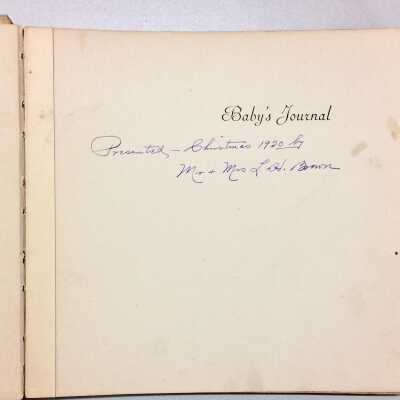 Baby's Journal
Presented - Christmas 1920 by
Mr + Mrs L. H. Brown